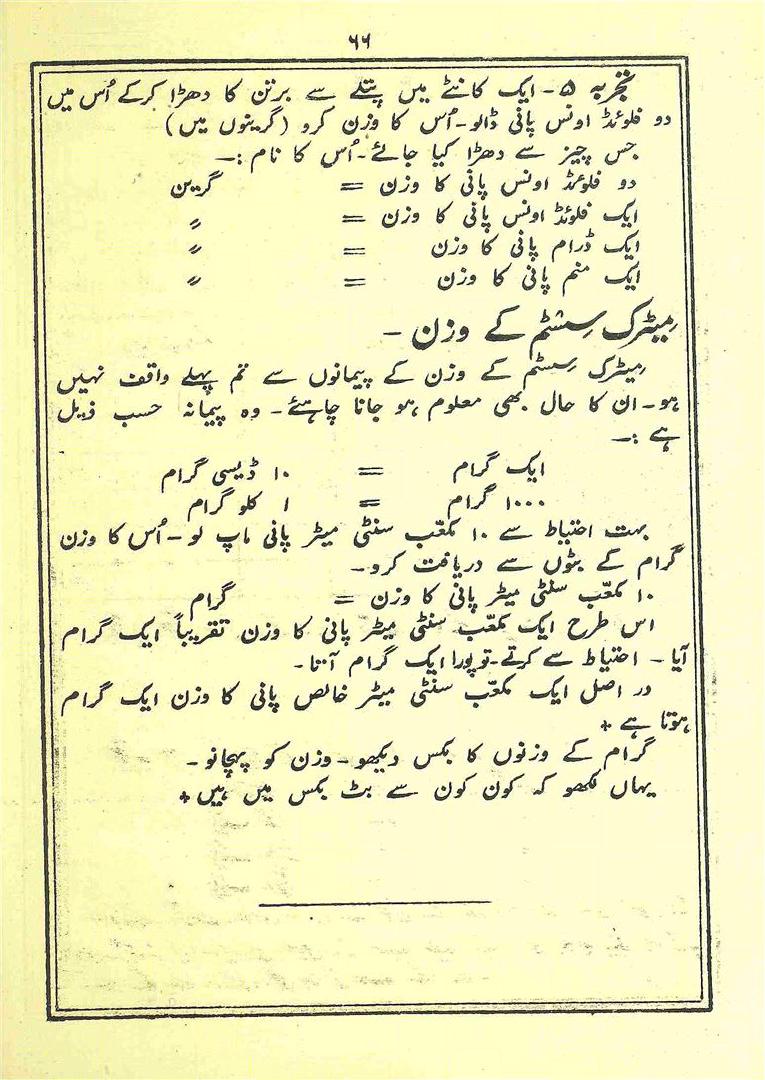 ۶۶
تجربہ ۵ - ایک کانٹے میں پتلے سے برتن کا دھڑا کرکے اُس میں
دو فلوئڈ اونس پانی ڈالو - اُس کا وزن کرو (گرینوں میں)
جس چیز سے دھڑا کیا جائے - اُس کا نام :—
دو فلوئڈ اونس پانی کا وزن = گرین
ایک فلوئڈ اونس پانی کا وزن = 〃
ایک ڈرام پانی کا وزن = 〃
ایک منم پانی کا وزن = 〃
میٹرک سِسٹم کے وزن -
میٹرک سِسٹم کے وزن کے پیمانوں سے تم پہلے واقف نہیں
ہو - ان کا حال بھی معلوم ہو جانا چاہئے - وہ پیمانہ حسب ذیل
ہے :—
ایک گرام = ۱۰ ڈیسی گرام
۱۰۰۰ گرام = ۱ کلو گرام
بہت احتیاط سے ۱۰ مکعّب سنٹی میٹر پانی ماپ لو - اُس کا وزن
گرام کے بٹوں سے دریافت کرو -
۱۰ مکعّب سنٹی میٹر پانی کا وزن = گرام
اس طرح ایک مکعّب سنٹی میٹر پانی کا وزن تقریباً ایک گرام
آیا - احتیاط سے کرتے - تو پورا ایک گرام آتا -
در اصل ایک مکعّب سنٹی میٹر خالص پانی کا وزن ایک گرام
ہوتا ہے *
گرام کے وزنوں کا بکس دیکھو - وزن کو پہچانو -
یہاں لکھو کہ کون کون سے بٹ بکس میں ہیں *